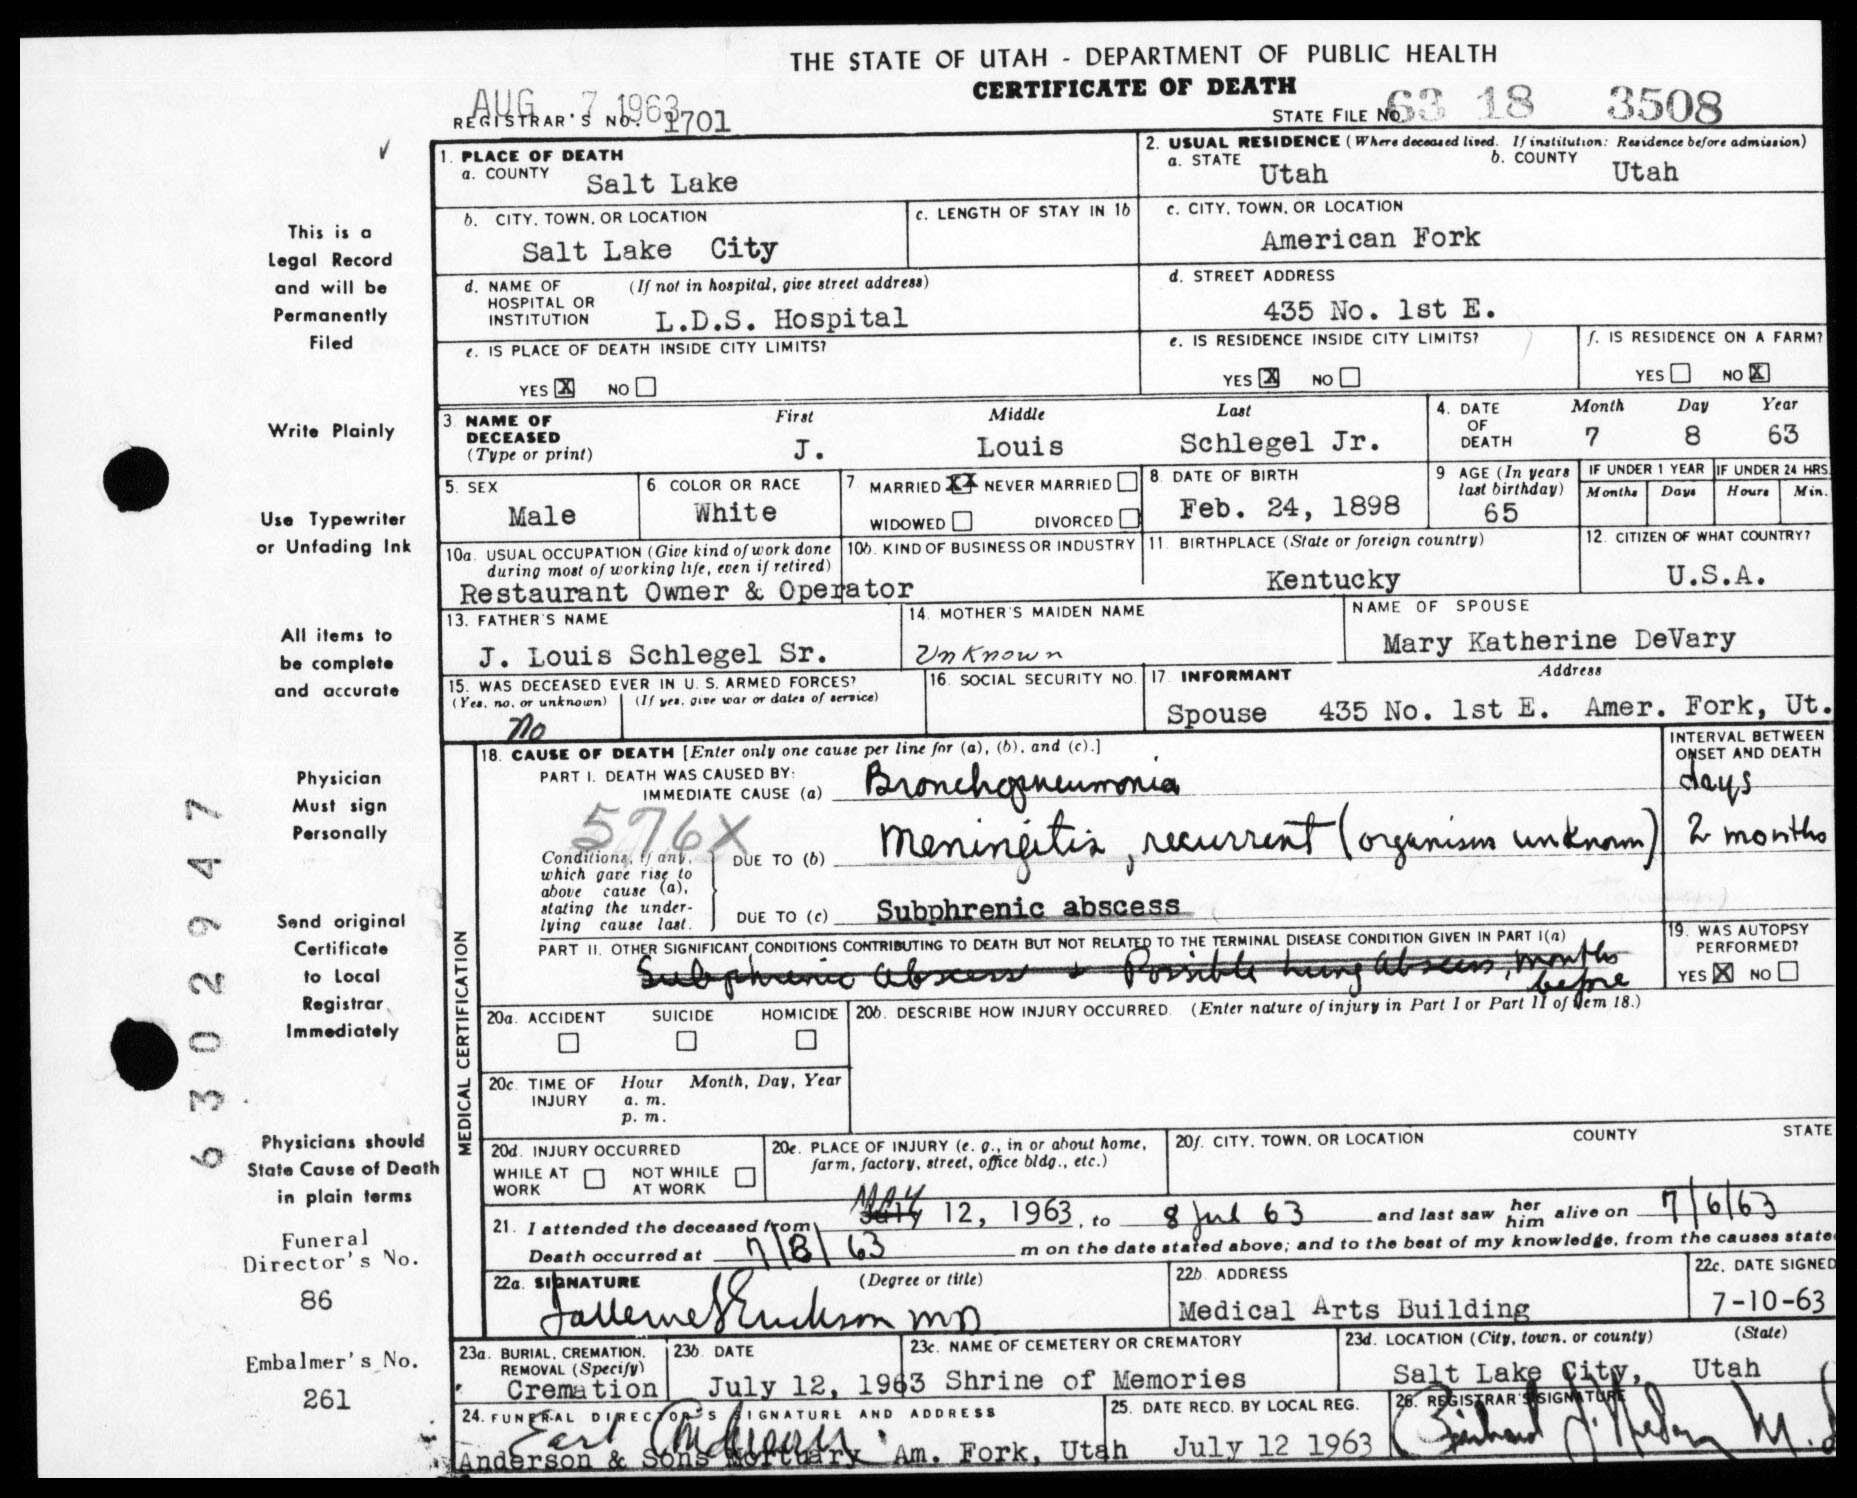 THE STATE OF UTAH - DEPARTMENT OF PUBLIC HEALTH
CERTIFICATE OF DEATH
AUG 7 1963
REGISTRAR'S NO. 1701
STATE FILE NO. 63 18 3508
1. PLACE OF DEATH
a. COUNTY Salt Lake
2. USUAL RESIDENCE (Where deceased lived. If institution: Residence before admission)
a. STATE Utah b. COUNTY Utah
b. CITY, TOWN, OR LOCATION
Salt Lake City
c. LENGTH OF STAY IN 1b
c. CITY, TOWN, OR LOCATION
American Fork
d. NAME OF HOSPITAL OR INSTITUTION (If not in hospital, give street address)
L.D.S. Hospital
d. STREET ADDRESS
435 No. 1st E.
e. IS PLACE OF DEATH INSIDE CITY LIMITS?
YES X NO
e. IS RESIDENCE INSIDE CITY LIMITS?
YES X NO
f. IS RESIDENCE ON A FARM?
YES NO X
3. NAME OF DECEASED (Type or print)
First Middle Last
J. Louis Schlegel Jr.
4. DATE OF DEATH
Month Day Year
7 8 63
5. SEX
Male
6. COLOR OR RACE
White
7 MARRIED XX NEVER MARRIED
WIDOWED DIVORCED
8. DATE OF BIRTH
Feb. 24, 1898
9 AGE (In years last birthday)
65
IF UNDER 1 YEAR
Months Days
IF UNDER 24 HRS.
Hours Min.
10a. USUAL OCCUPATION (Give kind of work done during most of working life, even if retired)
Restaurant Owner & Operator
10b. KIND OF BUSINESS OR INDUSTRY
11. BIRTHPLACE (State or foreign country)
Kentucky
12. CITIZEN OF WHAT COUNTRY?
U.S.A.
13. FATHER'S NAME
J. Louis Schlegel Sr.
14. MOTHER'S MAIDEN NAME
Unknown
NAME OF SPOUSE
Mary Katherine DeVary
15. WAS DECEASED EVER IN U. S. ARMED FORCES?
(Yes, no, or unknown) (If yes, give war or dates of service)
No
16. SOCIAL SECURITY NO.
17. INFORMANT Address
Spouse 435 No. 1st E. Amer. Fork, Ut.
MEDICAL CERTIFICATION
18. CAUSE OF DEATH [Enter only one cause per line for (a), (b), and (c).]
INTERVAL BETWEEN ONSET AND DEATH
PART I. DEATH WAS CAUSED BY:
IMMEDIATE CAUSE (a) Bronchopneumonia
days
576X
Conditions, if any, which gave rise to above cause (a), stating the underlying cause last.
DUE TO (b) Meningitis, recurrent (organism unknown)
2 months
DUE TO (c) Subphrenic abscess
PART II. OTHER SIGNIFICANT CONDITIONS CONTRIBUTING TO DEATH BUT NOT RELATED TO THE TERMINAL DISEASE CONDITION GIVEN IN PART I(a)
Subphrenic abscess + Possible lung abscess, months before
19. WAS AUTOPSY PERFORMED?
YES X NO
20a. ACCIDENT SUICIDE HOMICIDE
20b. DESCRIBE HOW INJURY OCCURRED. (Enter nature of injury in Part I or Part II of item 18.)
20c. TIME OF INJURY Hour Month, Day, Year
a. m.
p. m.
20d. INJURY OCCURRED
WHILE AT WORK NOT WHILE AT WORK
20e. PLACE OF INJURY (e. g., in or about home, farm, factory, street, office bldg., etc.)
20f. CITY, TOWN, OR LOCATION COUNTY STATE
21. I attended the deceased from July MAY 12, 1963, to 8 Jul 63 and last saw her him alive on 7/6/63
Death occurred at 7/8/63 m on the date stated above; and to the best of my knowledge, from the causes state
22a. SIGNATURE (Degree or title)
Erickson MD
22b. ADDRESS
Medical Arts Building
22c. DATE SIGNED
7-10-63
23a. BURIAL, CREMATION, REMOVAL (Specify)
Cremation
23b. DATE
July 12, 1963
23c. NAME OF CEMETERY OR CREMATORY
Shrine of Memories
23d. LOCATION (City, town, or county) (State)
Salt Lake City, Utah
24. FUNERAL DIRECTOR'S SIGNATURE AND ADDRESS
Earl Anderson
Anderson & Sons Mortuary Am. Fork, Utah
25. DATE RECD. BY LOCAL REG.
July 12 1963
26. REGISTRAR'S SIGNATURE
This is a
Legal Record
and will be
Permanently
Filed
Write Plainly
Use Typewriter
or Unfading Ink
All items to
be complete
and accurate
Physician
Must sign
Personally
Send original
Certificate
to Local
Registrar
Immediately
Physicians should
State Cause of Death
in plain terms
Funeral
Director's No.
86
Embalmer's No.
261
6302947